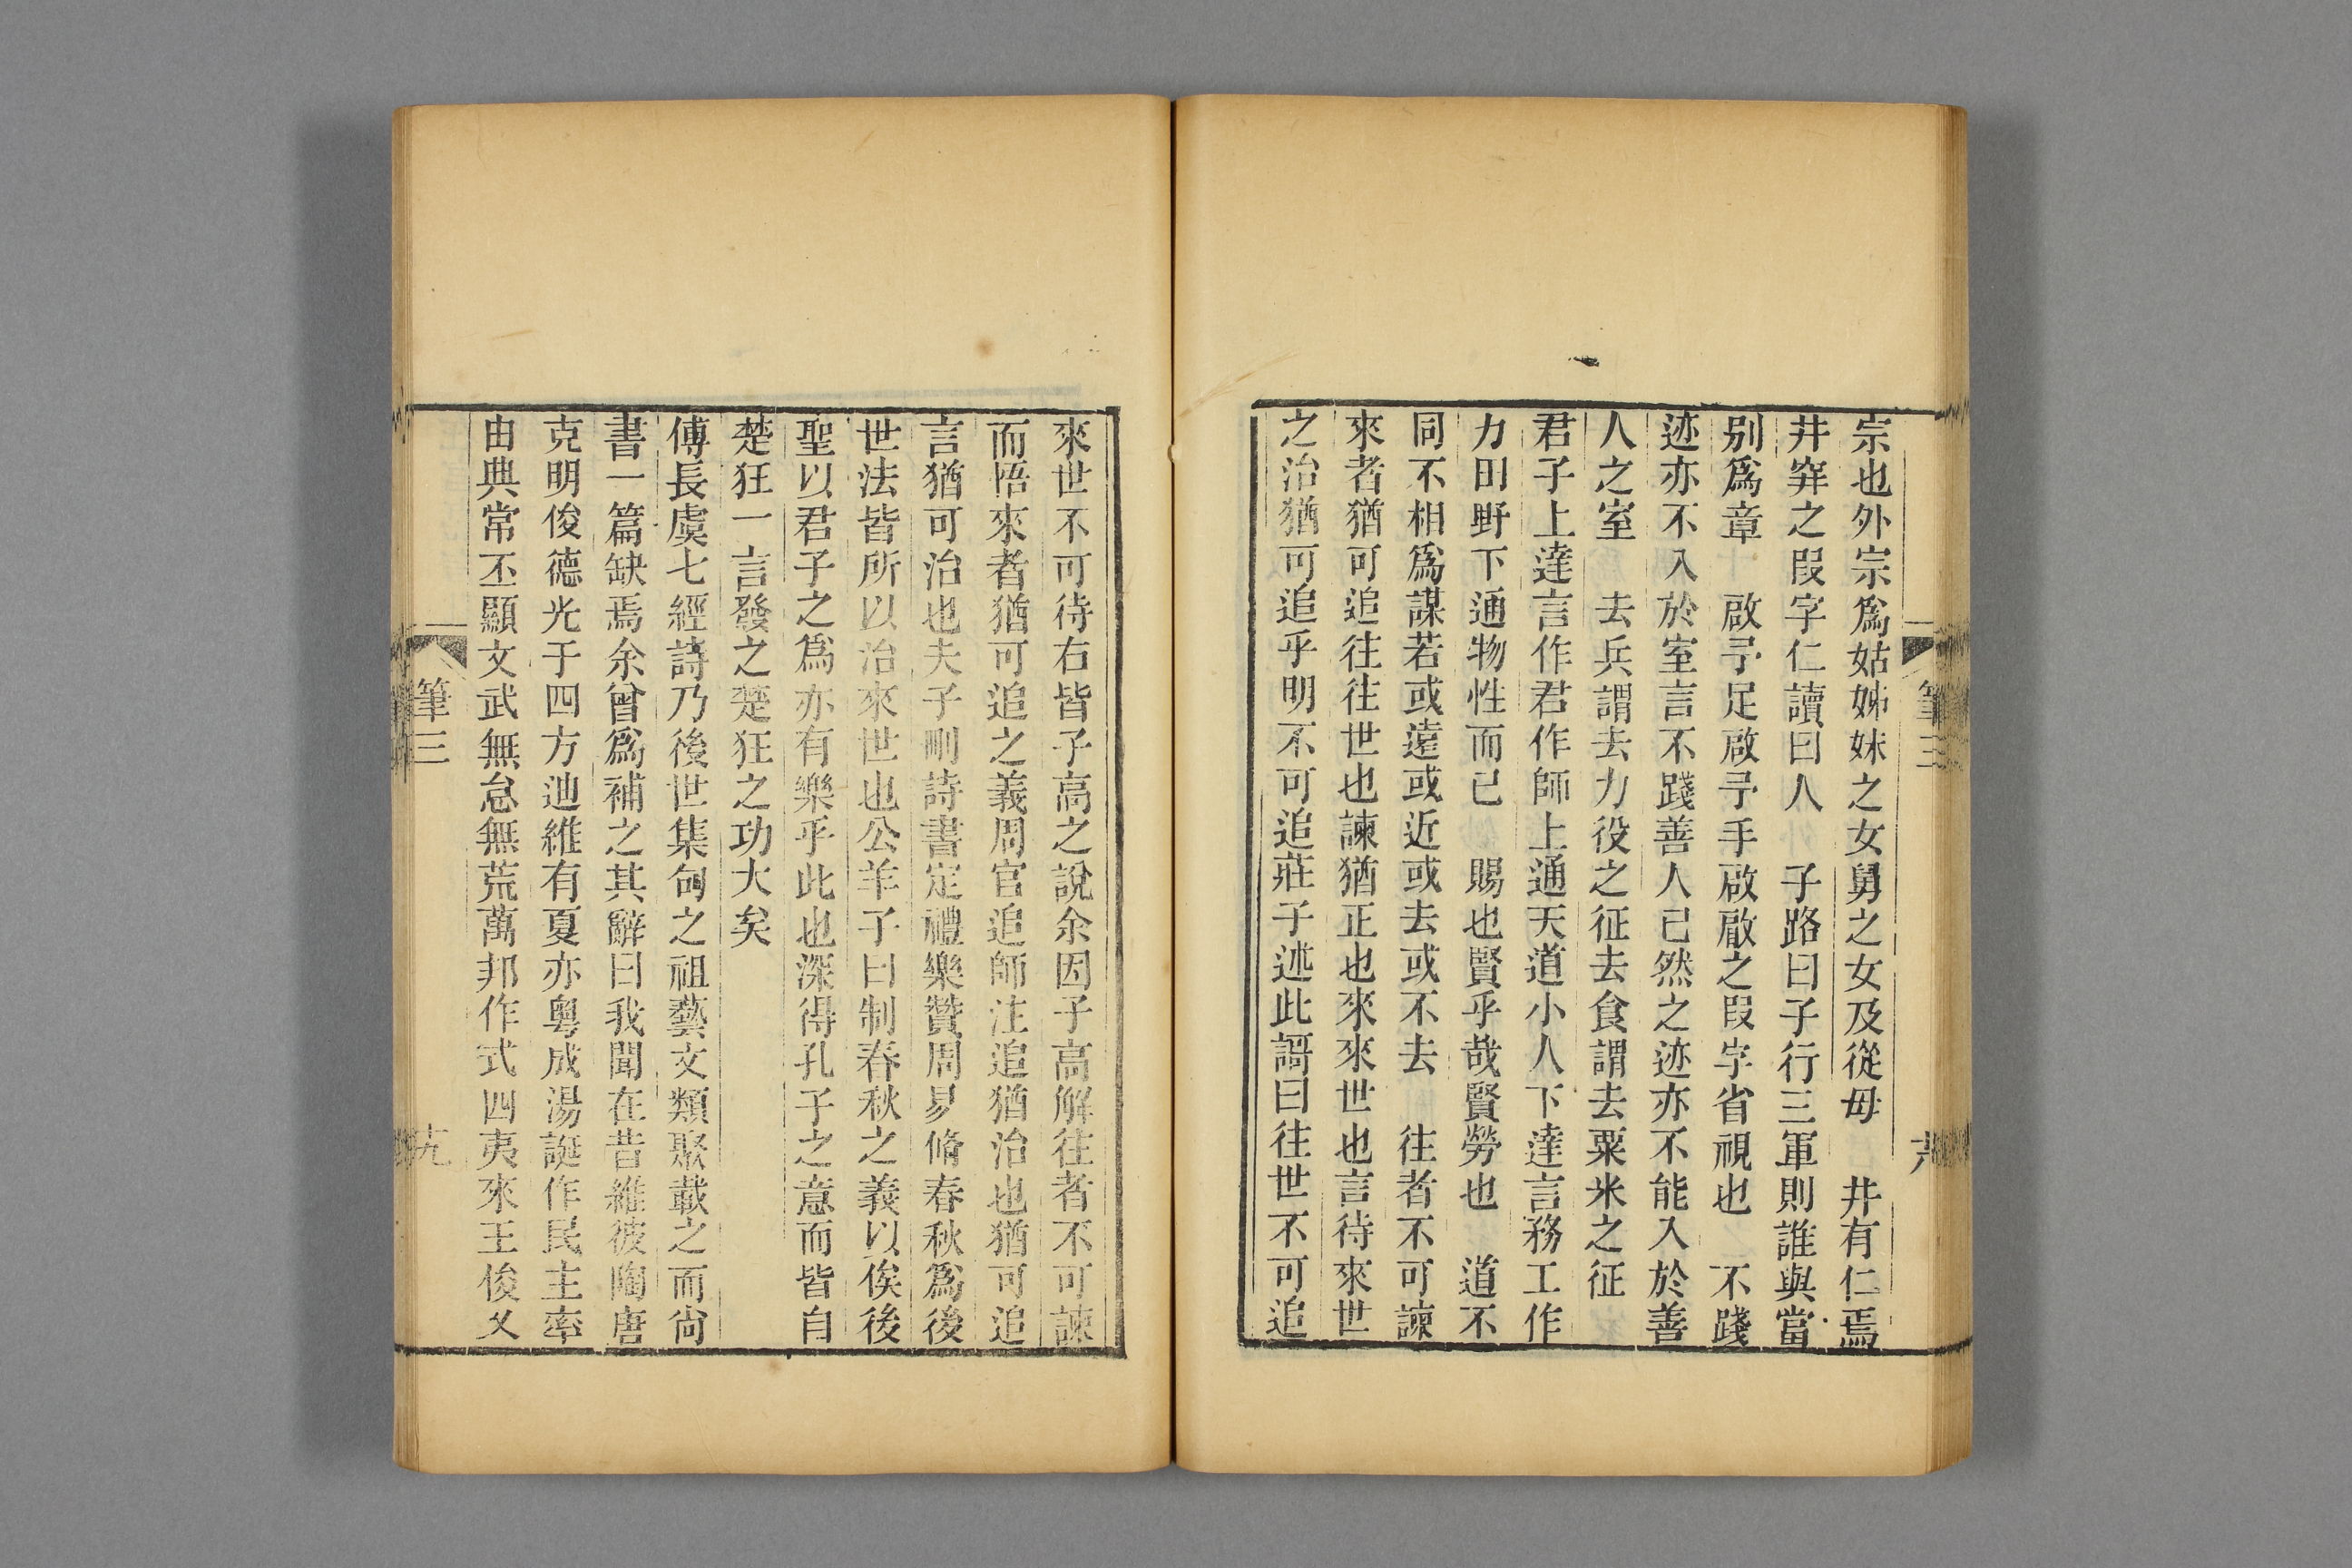 宗也外宗爲姑姊妹之女舅之女及從母　井有仁焉
井穽之叚字仁讀曰人　子路曰子行三軍則誰與當
别爲章　啟予足啟予手啟䁈之叚字省視也　不踐
迹亦不入於室言不踐善人已然之迹亦不能入於善
人之室　去兵謂去力役之征去食謂去粟米之征
君子上達言作君作師上通天道小人下達言務工作
力田野下通物性而已　賜也賢乎哉賢勞也　道不
同不相爲謀若或遠或近或去或不去　往者不可諫
來者猶可追往往世也諫猶正也來來世也言待來世
之治猶可追乎明不可追莊子述此謌曰往世不可追
筆三
六
來世不可待右皆子高之說余因子高解往者不可諫
而悟來者猶可追之義周官追師注追猶治也猶可追
言猶可治也夫子刪詩書定禮樂贊周易脩春秋爲後
世法皆所以治來世也公羊子曰制春秋之義以俟後
聖以君子之爲亦有樂乎此也深得孔子之意而皆自
楚狂一言發之楚狂之功大矣
傅長虞七經詩乃後世集句之祖藝文類聚載之而尙
書一篇缺焉余曾爲補之其辭曰我聞在昔維彼陶唐
克明俊德光于四方迪維有夏亦粵成湯誕作民主率
由典常丕顯文武無怠無荒萬邦作式四夷來王俊乂
筆三
十九